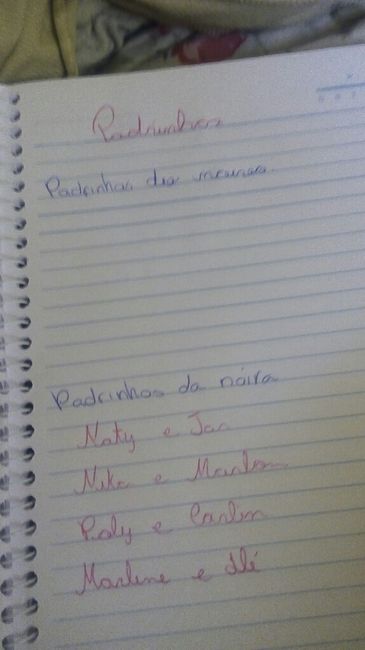 Padrinhos
Padrinhos do
Padrinhos da noiva
Naty e
Nika e Marlon
Poly e Carlin
Marlene e Alê